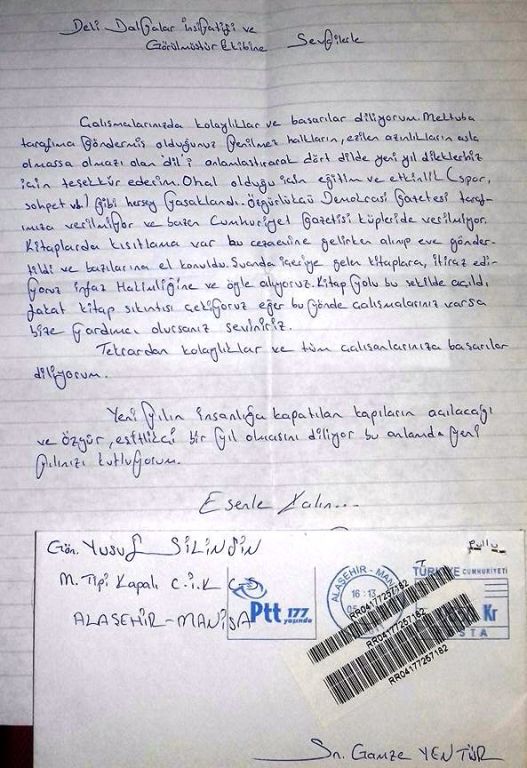 Deli Dalgalar İnsiyatifi ve
Görülmüştür Ekibine Sevgilerle
Çalışmalarınızda kolaylıklar ve başarılar diliyorum. Mektuba
tarafıma göndermiş olduğunuz yerilmez halkların, ezilen azınlıkların asla
olmazsa olmazı olan 'dil'i anlamlaştırarak dört dilde yeni yıl dilekleriniz
için teşekkür ederim. Ohal olduğu için eğitim ve etkinlik (spor,
sohpet vb.) gibi herşey yasaklandı. Özgürlükçü Demokrasi Gazetesi taraf-
ımıza verilmiyor ve bazen Cumhuriyet Gazetisi küpleride verilmiyor.
Kitaplarda kısıtlama var bu cezaevine gelirken alınıp eve gönde-
rildi ve bazılarına el konuldu. Şuanda içeriye gelen kitaplara, itiraz edi-
yoruz infaz Hakimliğine ve öyle alıyoruz. Kitap yolu bu şekilde açıldı
fakat kitap sıkıntısı çekiyoruz eğer bu yönde çalışmalarınız varsa
bize yardımcı olursanız seviniriz.
Tekrardan kolaylıklar ve tüm çalışanlarınıza başarılar
diliyorum.
Yeni yılın insanlığa kapatılan kapıların açılacağı
ve özgür, eşitlikçi bir yıl olmasını diliyor bu anlamda yeni
yılınızı kutluyorum.
Esenle Kalın...
Pullu
Gön. YUSUf SİLİNDİN
M. Tipi Kapalı C.İ.K
ALAŞEHİR-MANİSA
Ptt 177 yaşında
ALAŞEHİR - MAN
16:13
TÜRKİYE CUMHURİYETİ
Kr
STA
RR04177257162
RR04177257162
RR04177257162
Sn. Gamze YENTÜR